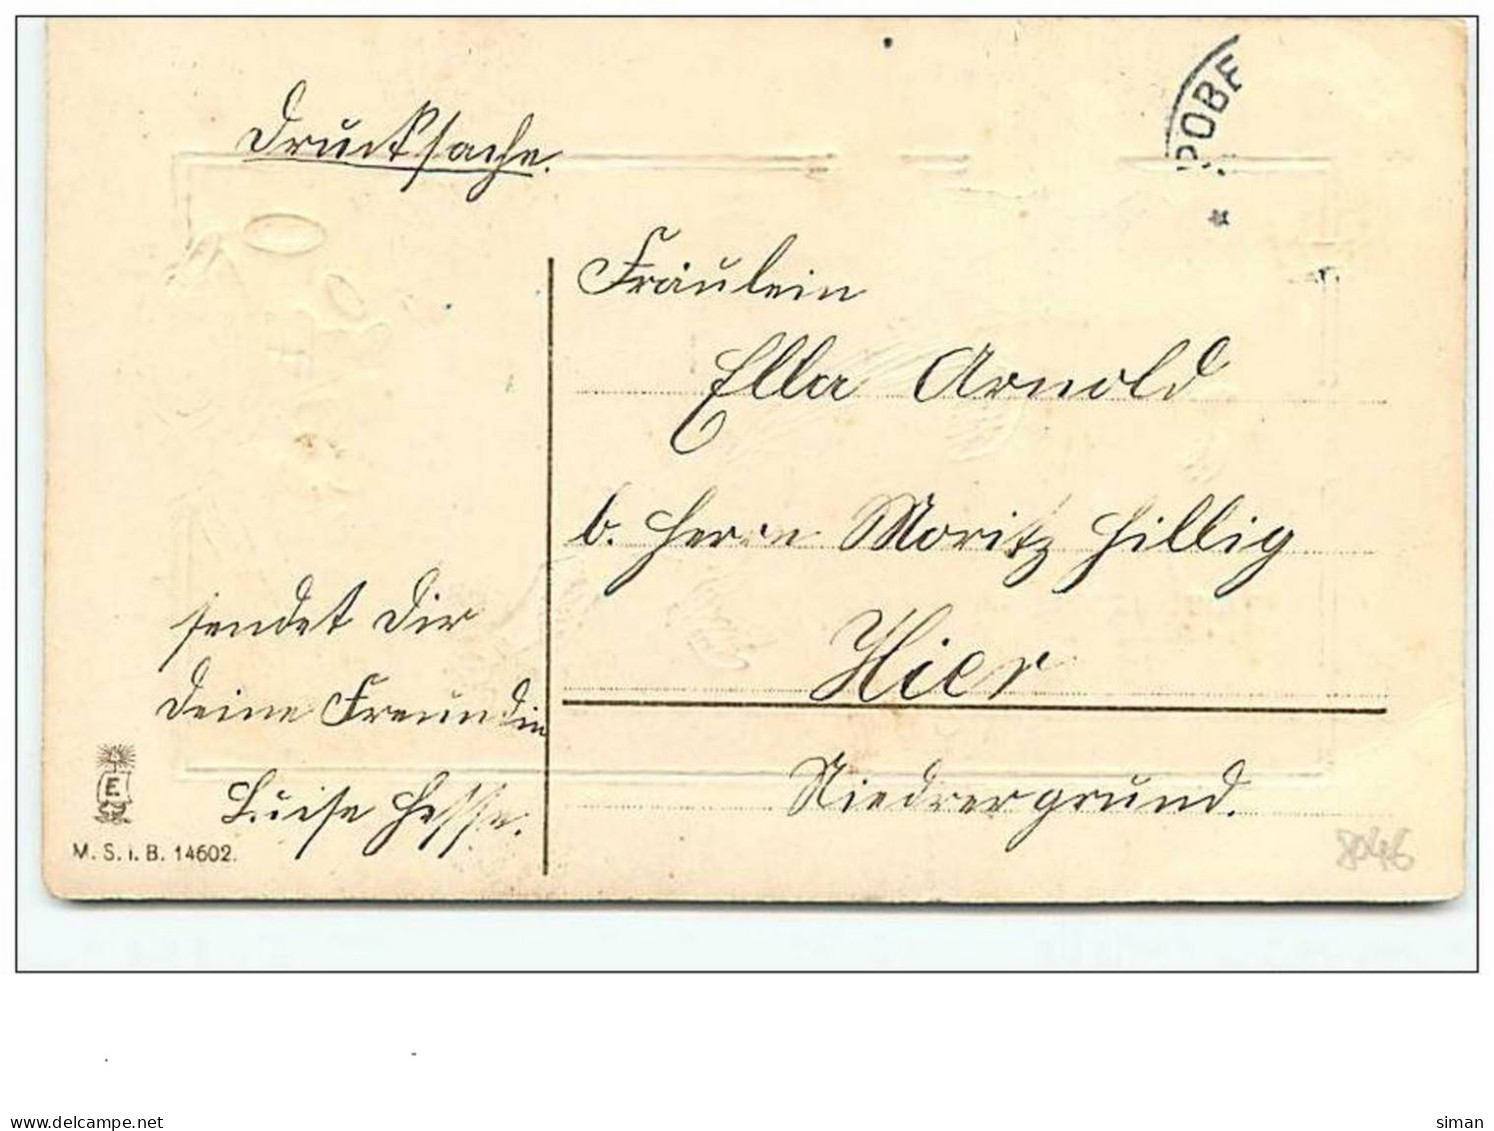 Drucksache.
POBE
Fräulein
Ella Arnold
b. Herrn Moritz Hillbig
Hier
Niedrergrund.
sendet Dir
Deine Freundin
Luise Hesse.
E
M. S. i. B. 14602.
8046
delcampe.net
siman